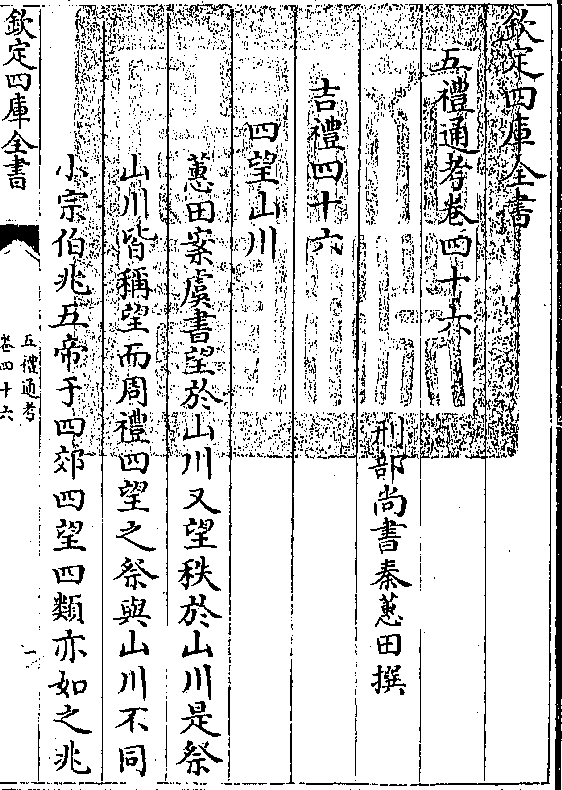 欽定四庫全書
五禮通考卷四十六
刑部尚書秦蕙田撰
吉禮四十六
四望山川
蕙田案虞書望於山川又望秩於山川是祭
山川皆稱望而周禮四望之祭與山川不同
小宗伯兆五帝于四郊四望四類亦如之兆
欽定四庫全書
五禮通考
卷四十六
一